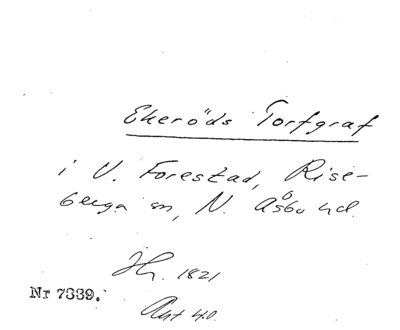 Ekeröds Torfgraf
i V. Forestad, Rise-
berga sn, N. Åsbo hd.
Jh. 1821
Nr 7339.
Akt 40.